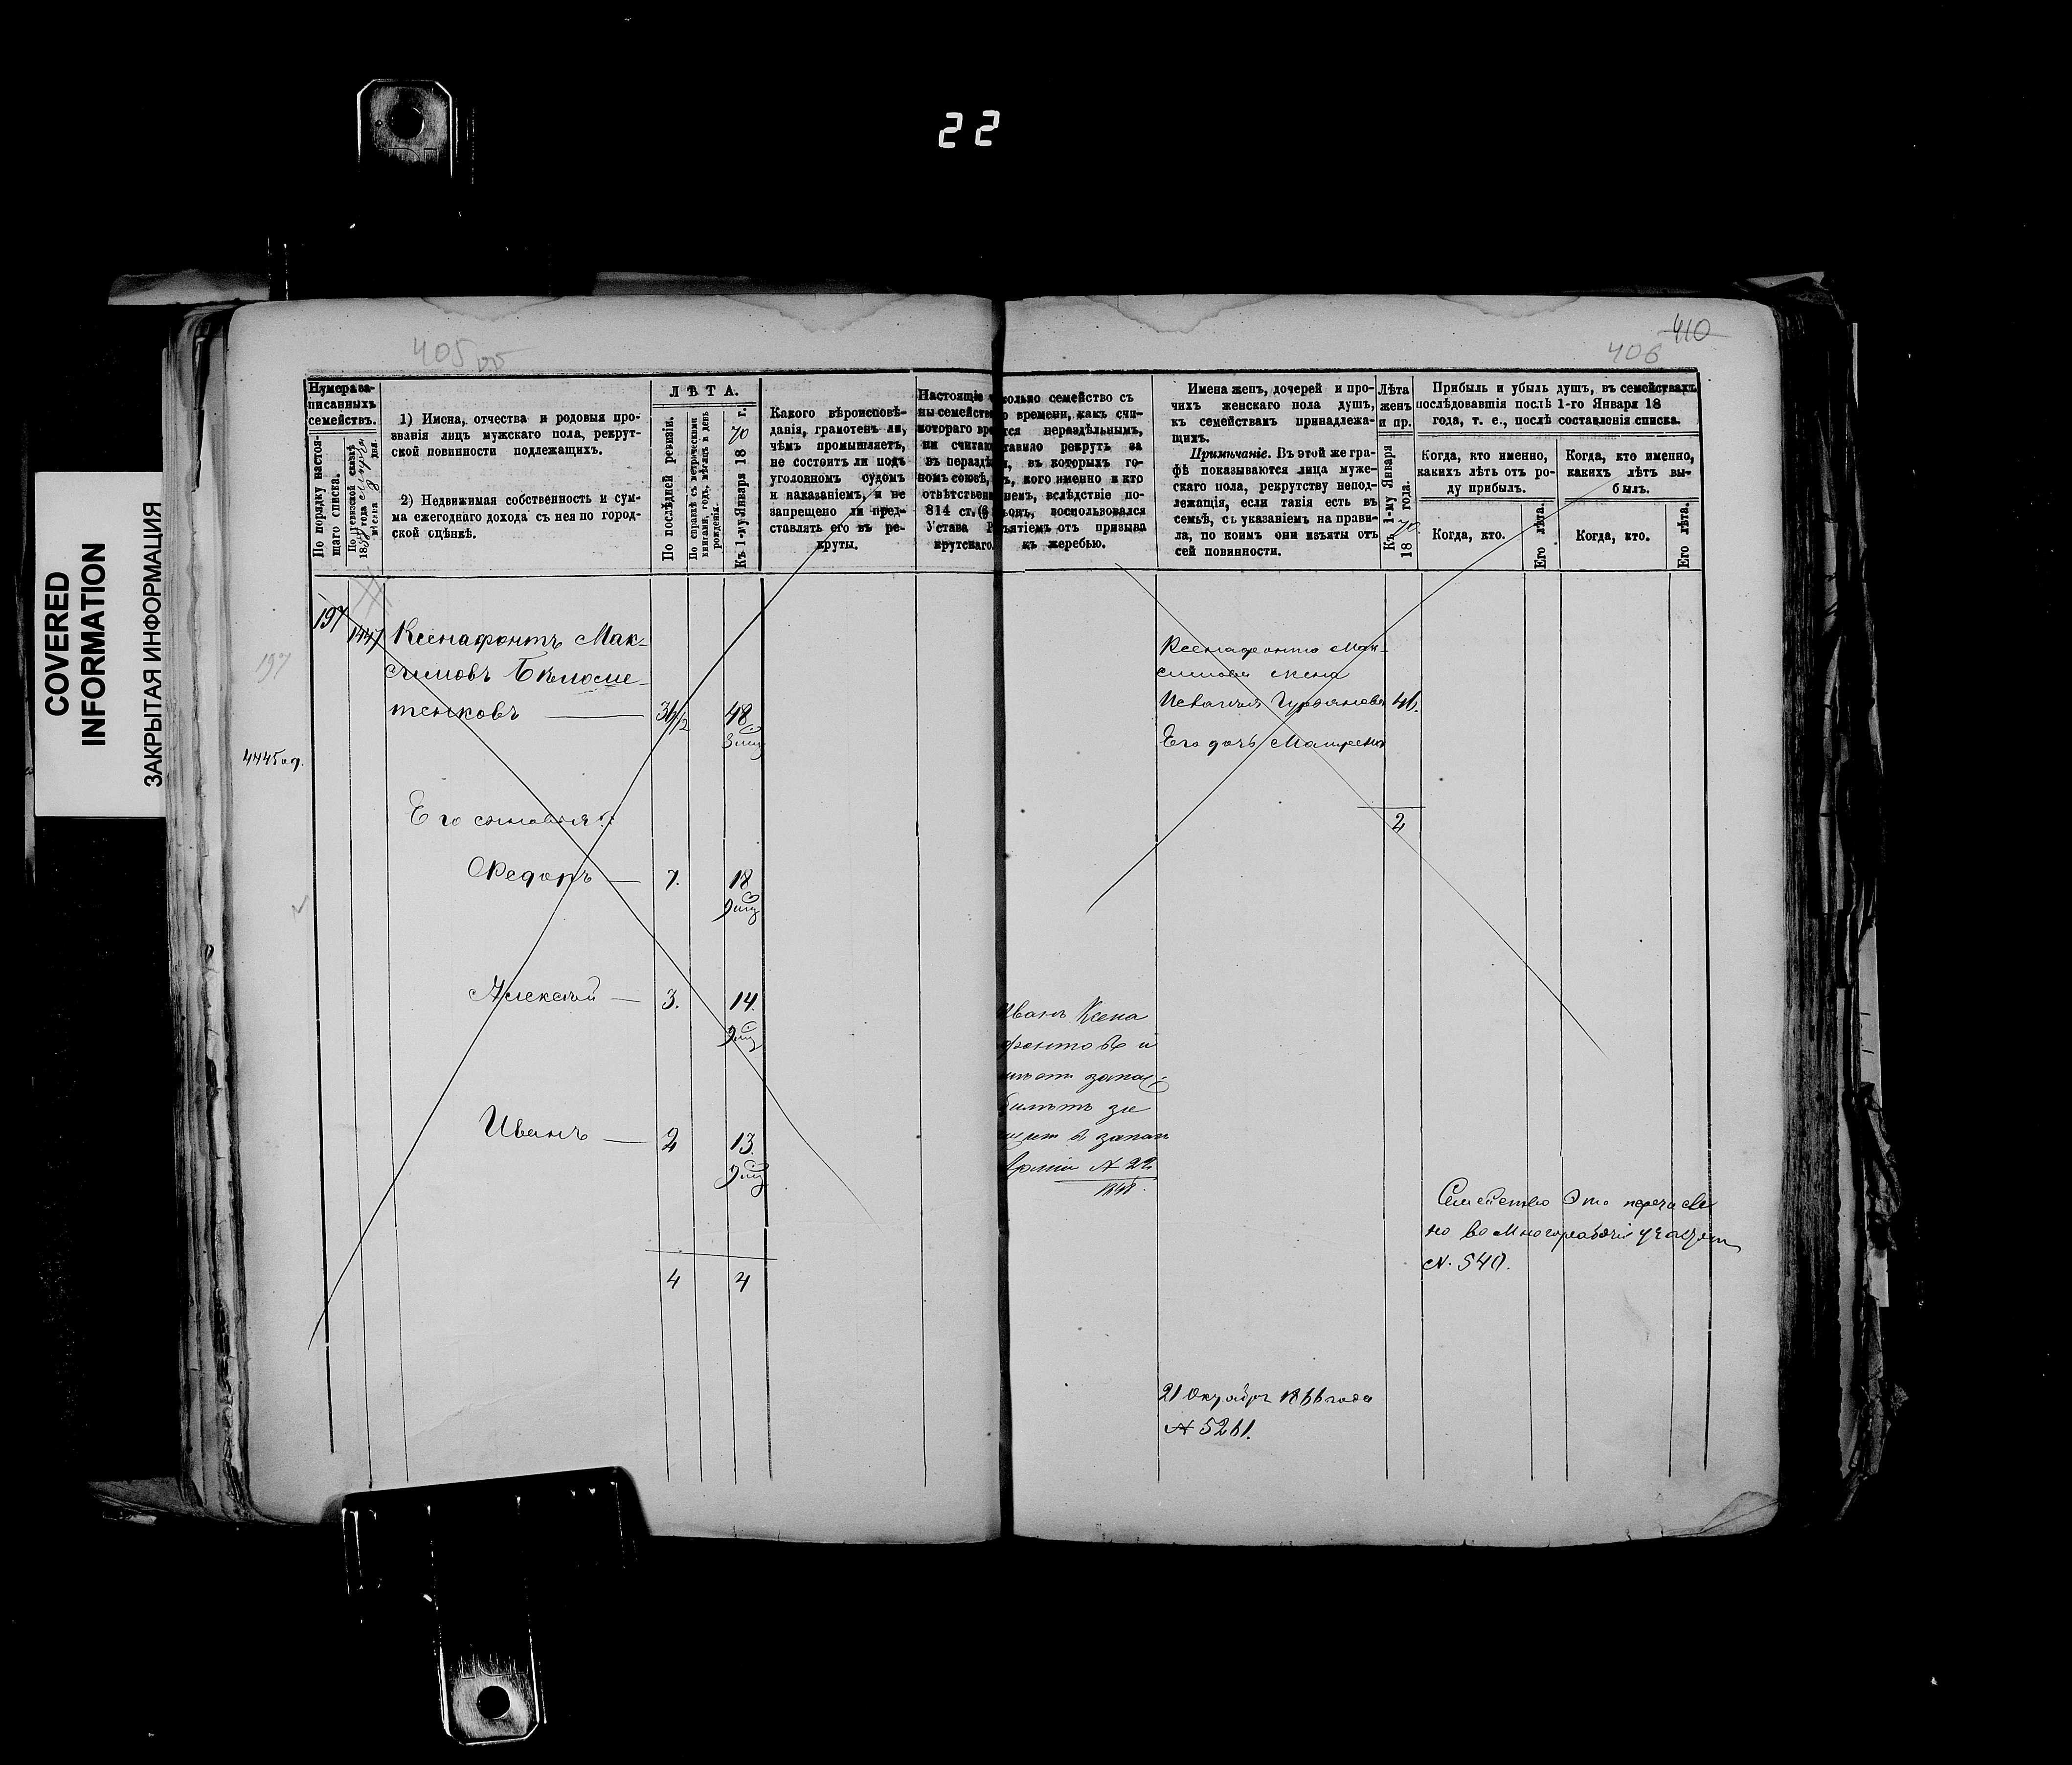 22
COVERED
INFORMATION
ЗАКРЫТАЯ ИНФОРМАЦИЯ
405 об
406
410
Нумера за-
писанныхъ
семействъ.
По порядку настоя-
щаго списка.
По ревизской сказкѣ
1) Имена, отчества и родовыя про-
званія лицъ мужскаго пола, рекрут-
ской повинности подлежащихъ.
2) Недвижимая собственность и сум-
ма ежегоднаго дохода съ нея по город-
ской оцѣнкѣ.
ЛѢТА.
По послѣдней ревизіи.
По справкѣ съ метрическими
книгами, годъ, мѣсяцъ и день
рожденія.
Къ 1-му Января 1870 г.
Какого вѣроисповѣ-
данія, грамотенъ ли,
чѣмъ промышляетъ,
не состоитъ ли подъ
уголовномъ судомъ
и наказаніемъ, и не
запрещено ли пред-
ставлять его въ ре-
круты.
Настоящіе
колько семейство съ
времени, какъ счи-
тся нераздѣльнымъ,
ставило рекрутъ за
въ которыхъ го-
кого именно и кто
вслѣдствіе по-
воспользовался
изъятіемъ отъ призыва
къ жеребью.
814 ст.
Устава
крутскаго.
Имена женъ, дочерей и про-
чихъ женскаго пола душъ,
къ семействамъ принадлежа-
щихъ.
Примѣчаніе. Въ этой же гра-
фѣ показываются лица муже-
скаго пола, рекрутству непод-
лежащія, если такія есть въ
семьѣ, съ указаніемъ на прави-
ла, по коимъ они изъяты отъ
сей повинности.
Лѣта
женъ
и пр.
Къ 1-му Января
1870 года.
Прибыль и убыль душъ, въ семействахъ
послѣдовавшія послѣ 1-го Января 18
года, т. е., послѣ составленія списка.
Когда, кто именно,
какихъ лѣтъ отъ ро-
ду прибылъ.
Когда, кто именно,
какихъ лѣтъ вы-
былъ.
Когда, кто.
Его лѣта.
Когда, кто.
Его лѣта.
197
1447
197
Ксенафонтъ Мак-
симовъ
тенковъ
36/12
48
Его сыновья:
Федоръ
7.
18
Алексѣй
3.
14.
Иванъ
2
13.
4
4
Ксенафонта Мак-
симова жена
46.
Его дочь Матрена
2
Иванъ Ксена
фонтовъ
билетъ
Арміи № 22.
Семейство это
но во
№ 540.
21 Октября 1866 года
№ 5261.